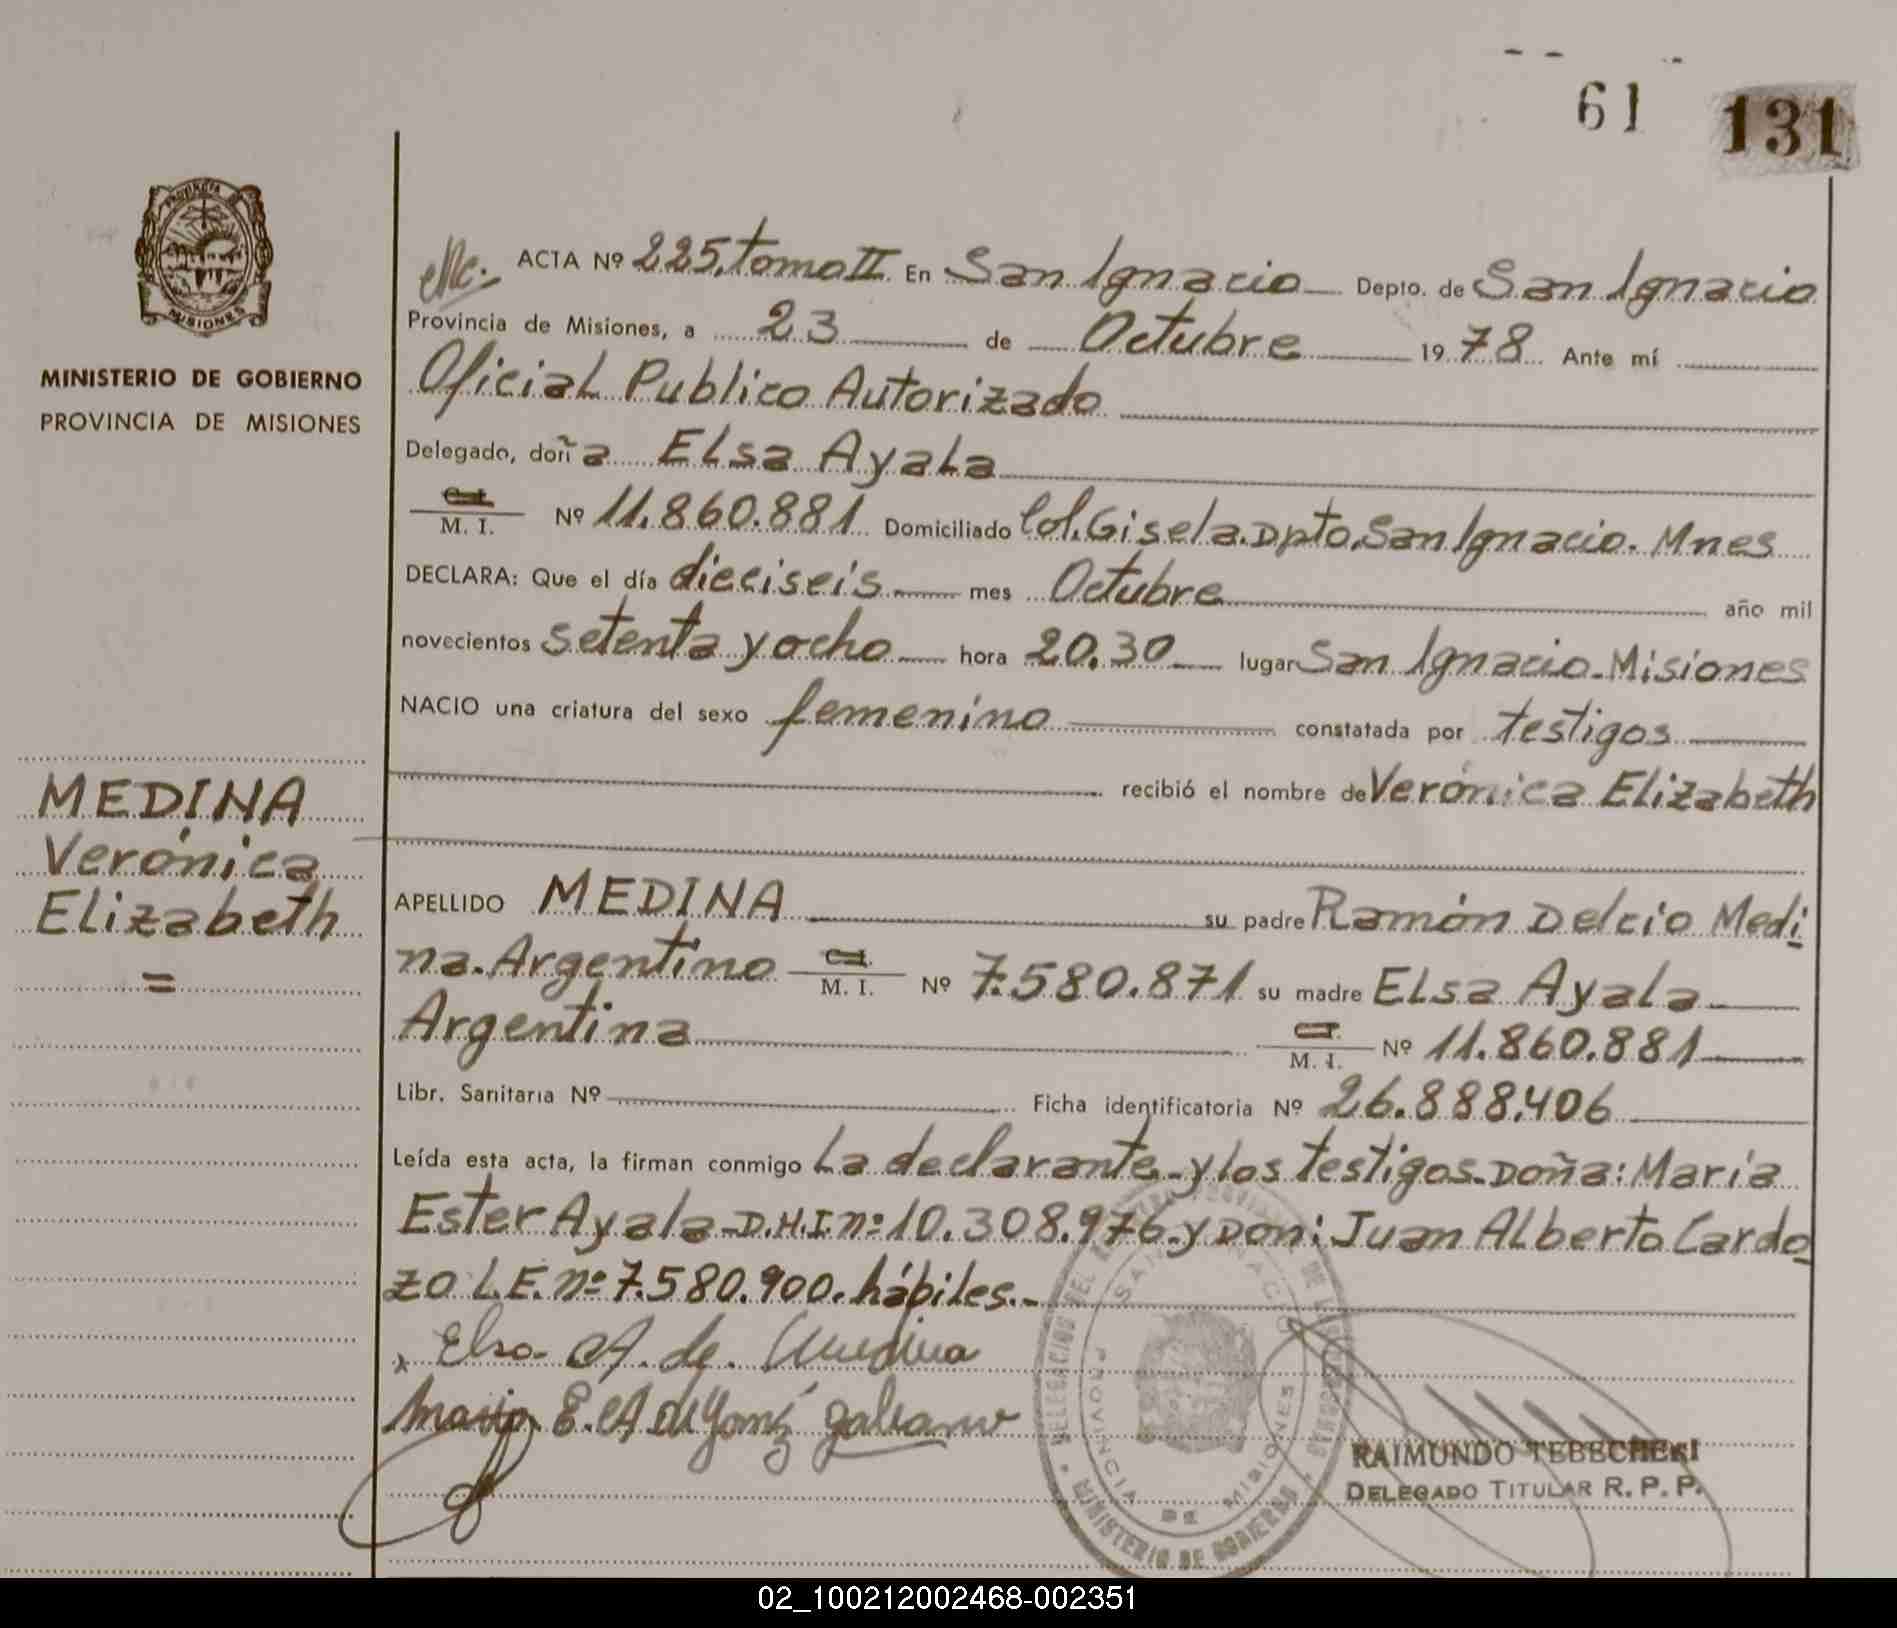 61 131
PROVINCIA
MISIONES
MINISTERIO DE GOBIERNO
PROVINCIA DE MISIONES
ACTA Nº 225.tomo II En San Ignacio Depto. de San Ignacio
Provincia de Misiones, a 23 de Octubre 1978 Ante mí
Oficial Publico Autorizado
Delegado, doña Elsa Ayala
C.I. M. I. Nº 11.860.881 Domiciliado Col.Gisela.Dpto.San Ignacio. Mnes
DECLARA: Que el día dieciseis mes Octubre año mil
novecientos setenta y ocho hora 20.30 lugar San Ignacio-Misiones
NACIO una criatura del sexo femenino constatada por testigos
recibió el nombre de Verónica Elizabeth
MEDINA
Verónica
Elizabeth
=
APELLIDO MEDINA su padre Ramón Delcio Medi
na.Argentino C.I. M. I. Nº 7.580.871 su madre Elsa Ayala
Argentina C.I. M. I. Nº 11.860.881
Libr. Sanitaria Nº Ficha identificatoria Nº 26.888.406
Leída esta acta, la firman conmigo la declarante-y los testigos-Doña: María
Ester Ayala-D.N.I.nº:10.308.976-y Don: Juan Alberto Cardo
zo L.E. nº 7.580.900. hábiles.-
x Elsa A. de Medina
DELEGACION DEL REGISTRO PROVINCIAL DE LAS PERSONAS
SAN IGNACIO
PROVINCIA DE MISIONES
MINISTERIO DE GOBIERNO
RAIMUNDO TEBECHERI
DELEGADO TITULAR R. P. P.
02_100212002468-002351